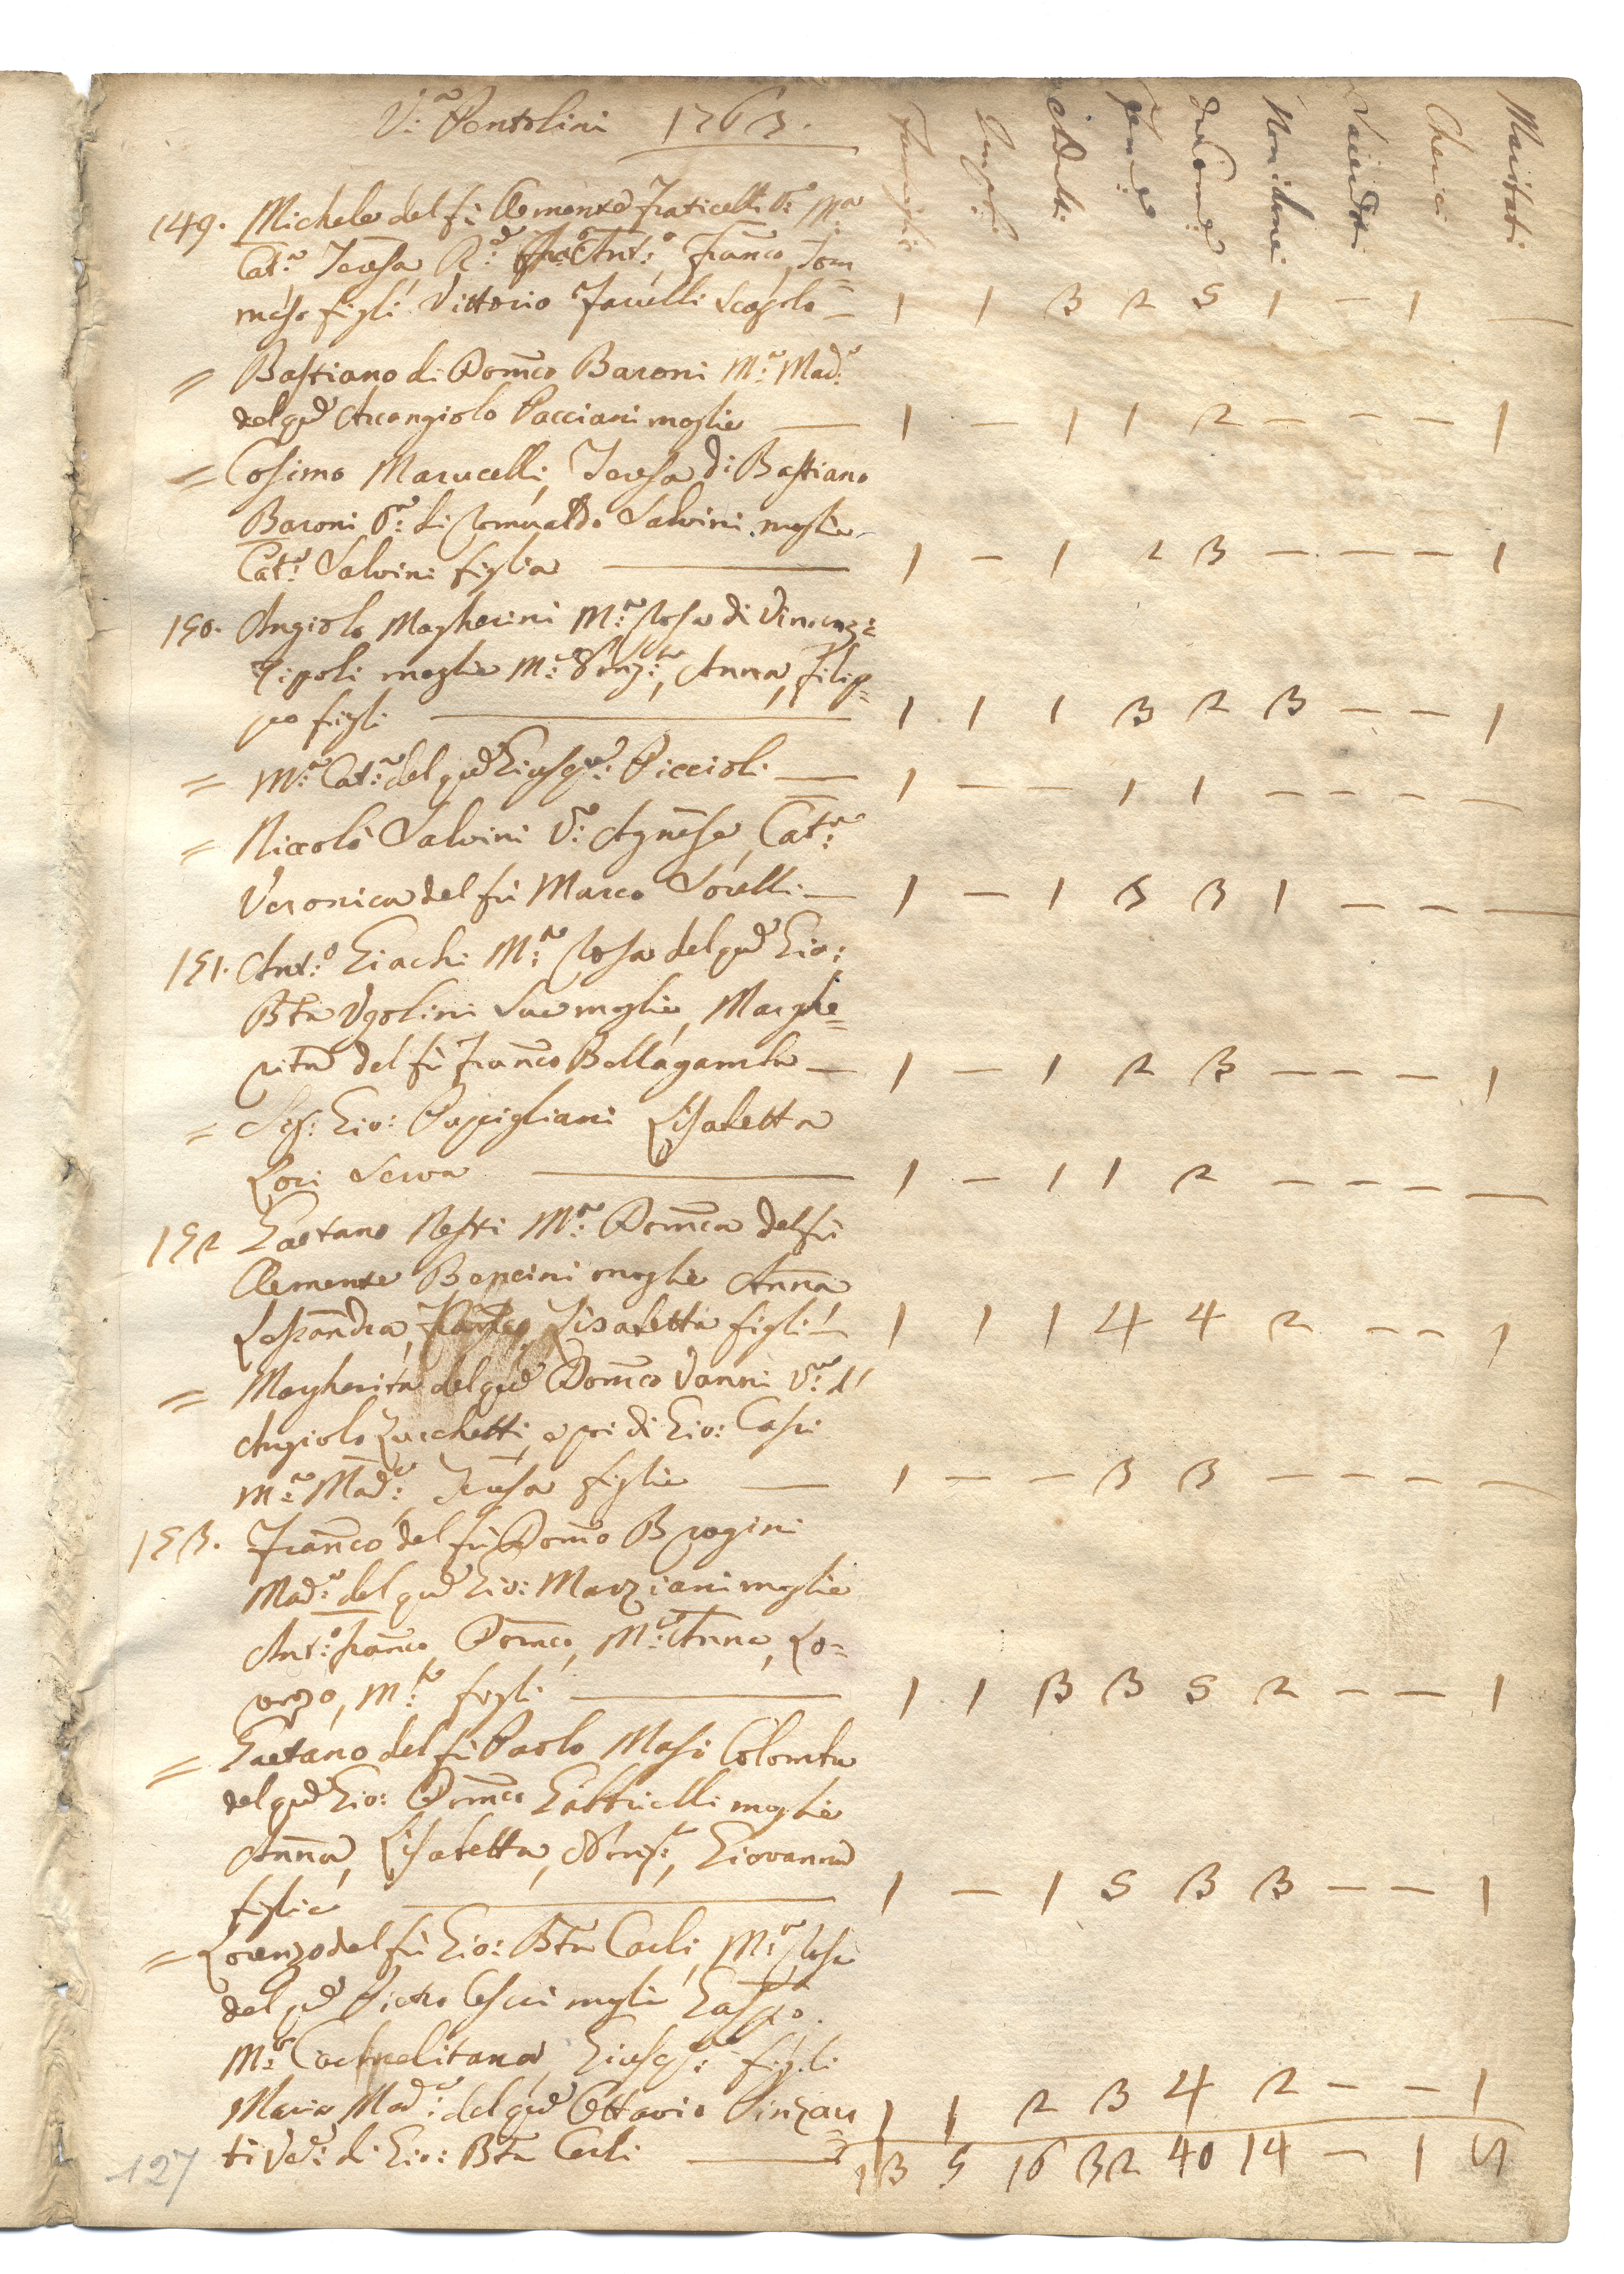 V.ª Pentolini 1763.
Famiglie Impuberi Adulti Femme Comu: Non Com: Sacerdoti Cherici Maritati
149. Michele del fù Clemente Fraticelli V:º M:ª
Cat:ª Teresa Ant:º, Franco, Tom=
maso figli Vittorio Iacelli Scapolo — 1 1 3 2 5 1 — 1 —
= Bastiano di Domco Baroni M:ª Mad:ª
del qd Arcangiolo Pacciani moglie — 1 — 1 1 2 — — — 1
= Cosimo Marucelli, Teresa di Bastiano
Baroni V:ª di Romualdo Salvini moglie
Cat:ª Salvini figlia — 1 — 1 2 3 — — — 1
150. Angiolo Magherini M:ª Rosa di Vincenzi:
Zipoli moglie M:ª Orz:ª, Anna, Filip=
po figli — 1 1 1 3 2 3 — — 1
= M:ª Cat:ª del qd Giusep:e Piccioli — 1 — — 1 1 — — — —
= Niccolò Salvini V:º Agnesa, Cat:ª
Veronica del fù Marco Sorelli — 1 — 1 3 3 1 — — —
151. Ant:º Giachi M:ª Rosa del qd Gio:
Bta Ugolini Sua moglie, Marghe=
rita del fù Franco Bellagamba — 1 — 1 2 3 — — — 1
= Gio: Puppigliani Lisabetta
Lori Serva — 1 — 1 1 2 — — — —
152 Gaetano Nesti M:ª Domca del fù
Clemente Bencini moglie Anna
Lessandra, Lisabetta figli — 1 1 1 4 4 2 — — 1
= Margherita del qd Domco Vanni V:ª d'
Angiolo Zucchetti, e poi di Gio: Casi
M:ª Mad:ª, Teresa figlie — 1 — — 3 3 — — — —
153. Franco del fù Domco Brogini
Mad:ª del qd Gio: Marziani moglie
Ant:º Franco, Domco, M:ª Anna, Lo=
renzo, M:ª figli — 1 1 3 3 5 2 — — 1
= Gaetano del fù Paolo Masi Colomba
del qd Gio: Domco Gabbrielli moglie
Anna, Lisabetta, Giovanna
figlie — 1 — 1 5 3 3 — — 1
= Lorenzo del fù Gio: Bta Carli, M:ª Rosa
del qd Pietro Cescri moglie Gaspº
M:ª Giusep:e figli
Maria Mad:ª del qd Ottavio Pinzau 1 1 2 3 4 2 — — 1
ti Ved:ª di Gio: Bta Carli — 13 5 16 32 40 14 — 1 9
127